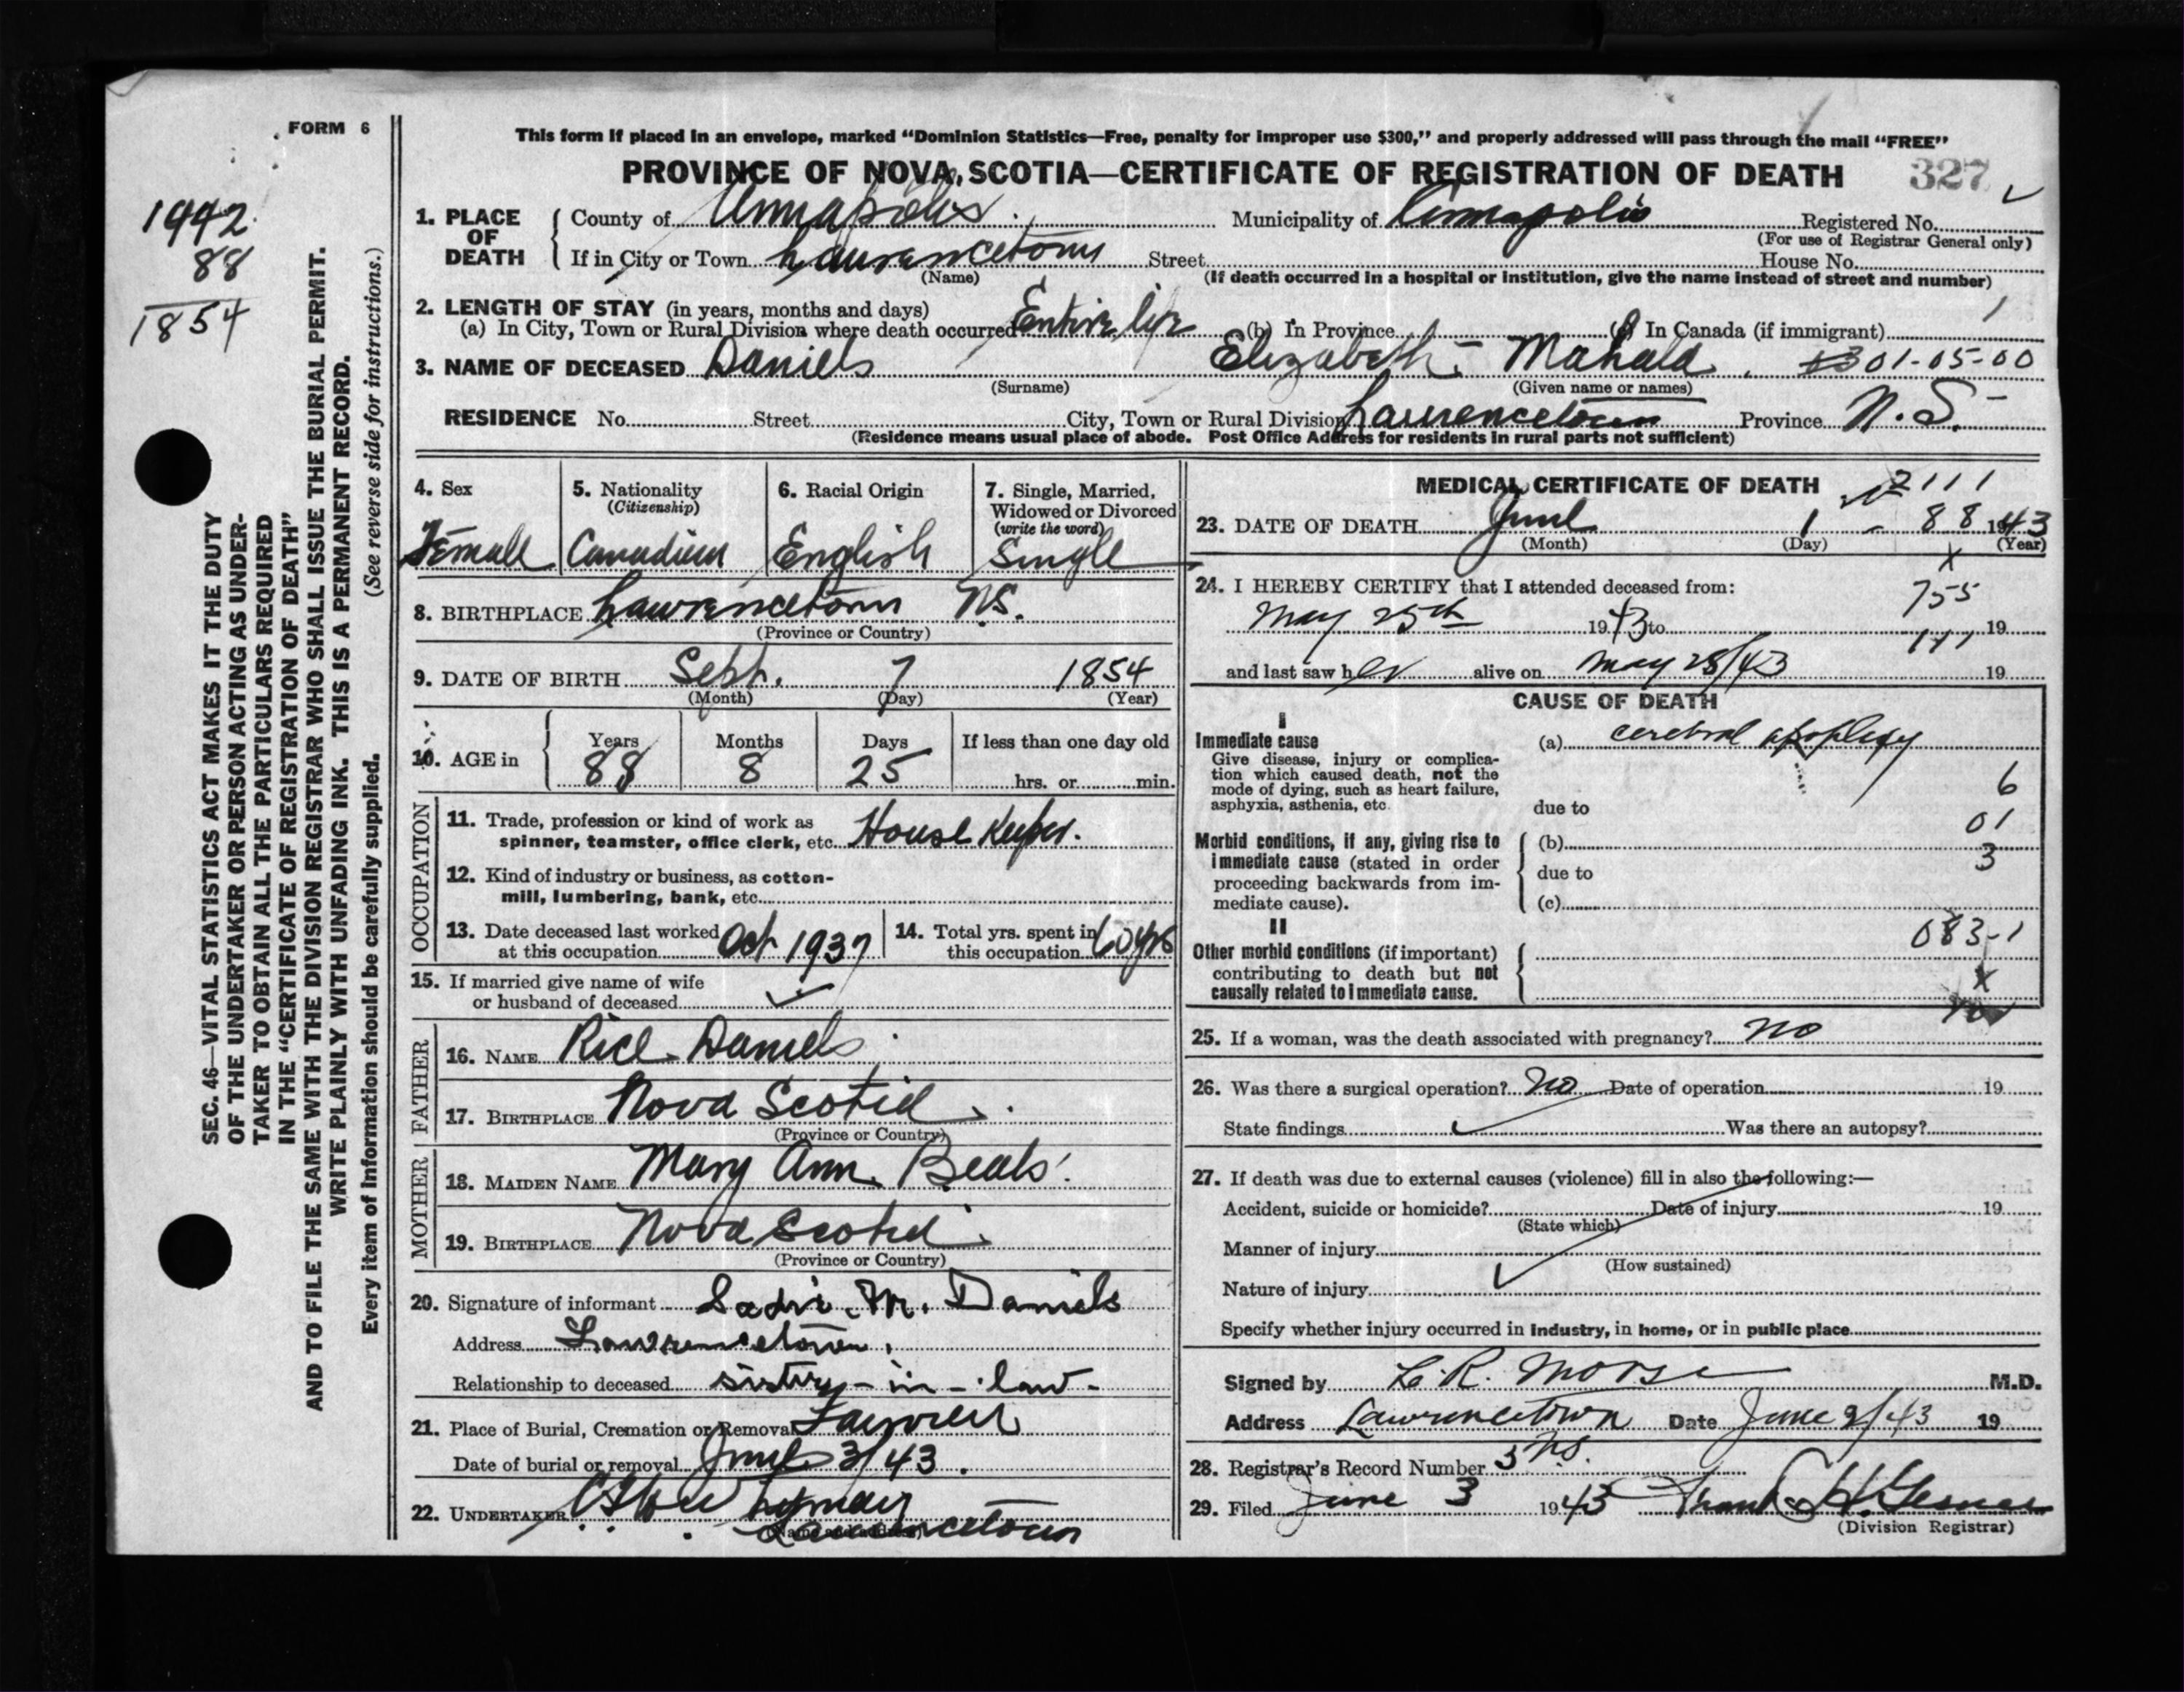 FORM 6
This form if placed in an envelope, marked "Dominion Statistics—Free, penalty for improper use $300," and properly addressed will pass through the mail "FREE"
PROVINCE OF NOVA SCOTIA—CERTIFICATE OF REGISTRATION OF DEATH 327
1942
88
1854
SEC. 46—VITAL STATISTICS ACT MAKES IT THE DUTY
OF THE UNDERTAKER OR PERSON ACTING AS UNDER-
TAKER TO OBTAIN ALL THE PARTICULARS REQUIRED
IN THE "CERTIFICATE OF REGISTRATION OF DEATH"
AND TO FILE THE SAME WITH THE DIVISION REGISTRAR WHO SHALL ISSUE THE BURIAL PERMIT.
WRITE PLAINLY WITH UNFADING INK. THIS IS A PERMANENT RECORD.
Every item of information should be carefully supplied. (See reverse side for instructions.)
1. PLACE OF DEATH County of Annapolis Municipality of Annapolis Registered No.
(For use of Registrar General only)
If in City or Town Lawrencetown Street House No.
(Name) (If death occurred in a hospital or institution, give the name instead of street and number)
2. LENGTH OF STAY (in years, months and days)
(a) In City, Town or Rural Division where death occurred Entire life (b) In Province (c) In Canada (if immigrant)
3. NAME OF DECEASED Daniels Elizabeth Mahala 01-05-00
(Surname) (Given name or names)
RESIDENCE No. Street City, Town or Rural Division Lawrencetown Province N.S.
(Residence means usual place of abode. Post Office Address for residents in rural parts not sufficient)
4. Sex 5. Nationality 6. Racial Origin 7. Single, Married,
(Citizenship) Widowed or Divorced
(write the word)
Female Canadian English Single
8. BIRTHPLACE Lawrencetown N.S.
(Province or Country)
9. DATE OF BIRTH Sept. 7 1854
(Month) (Day) (Year)
10. AGE in Years Months Days If less than one day old
88 8 25 hrs. or min.
OCCUPATION
11. Trade, profession or kind of work as
spinner, teamster, office clerk, etc. House Keeper.
12. Kind of industry or business, as cotton-
mill, lumbering, bank, etc.
13. Date deceased last worked at this occupation Oct 1937 14. Total yrs. spent in this occupation 60 yrs
15. If married give name of wife
or husband of deceased
FATHER
16. NAME Rice Daniels
17. BIRTHPLACE Nova Scotia
(Province or Country)
MOTHER
18. MAIDEN NAME Mary Ann Beals
19. BIRTHPLACE Nova Scotia
(Province or Country)
20. Signature of informant Sadie M. Daniels
Address Lawrencetown
Relationship to deceased sister-in-law
21. Place of Burial, Cremation or Removal Fairview
Date of burial or removal June 3/43
22. UNDERTAKER
(Name and address) Lawrencetown
MEDICAL CERTIFICATE OF DEATH
2111
23. DATE OF DEATH June 1 88 1943
(Month) (Day) (Year)
x
24. I HEREBY CERTIFY that I attended deceased from:
755
May 25th 1943 to 19
111
and last saw her alive on May 28/43 19
CAUSE OF DEATH
I
Immediate cause (a) cerebral apoplexy
Give disease, injury or complica-
tion which caused death, not the
mode of dying, such as heart failure,
asphyxia, asthenia, etc. due to
6
01
Morbid conditions, if any, giving rise to (b)
3
immediate cause (stated in order
proceeding backwards from im- due to
mediate cause). (c)
II
083-1
Other morbid conditions (if important)
contributing to death but not
causally related to immediate cause.
x
25. If a woman, was the death associated with pregnancy? no
26. Was there a surgical operation? no Date of operation 19
State findings Was there an autopsy?
27. If death was due to external causes (violence) fill in also the following:—
Accident, suicide or homicide? Date of injury 19
(State which)
Manner of injury
(How sustained)
Nature of injury
Specify whether injury occurred in industry, in home, or in public place
Signed by L. R. Morse M.D.
Address Lawrencetown Date June 2/43 19
N.S.
28. Registrar's Record Number 3
29. Filed June 3 1943
(Division Registrar)